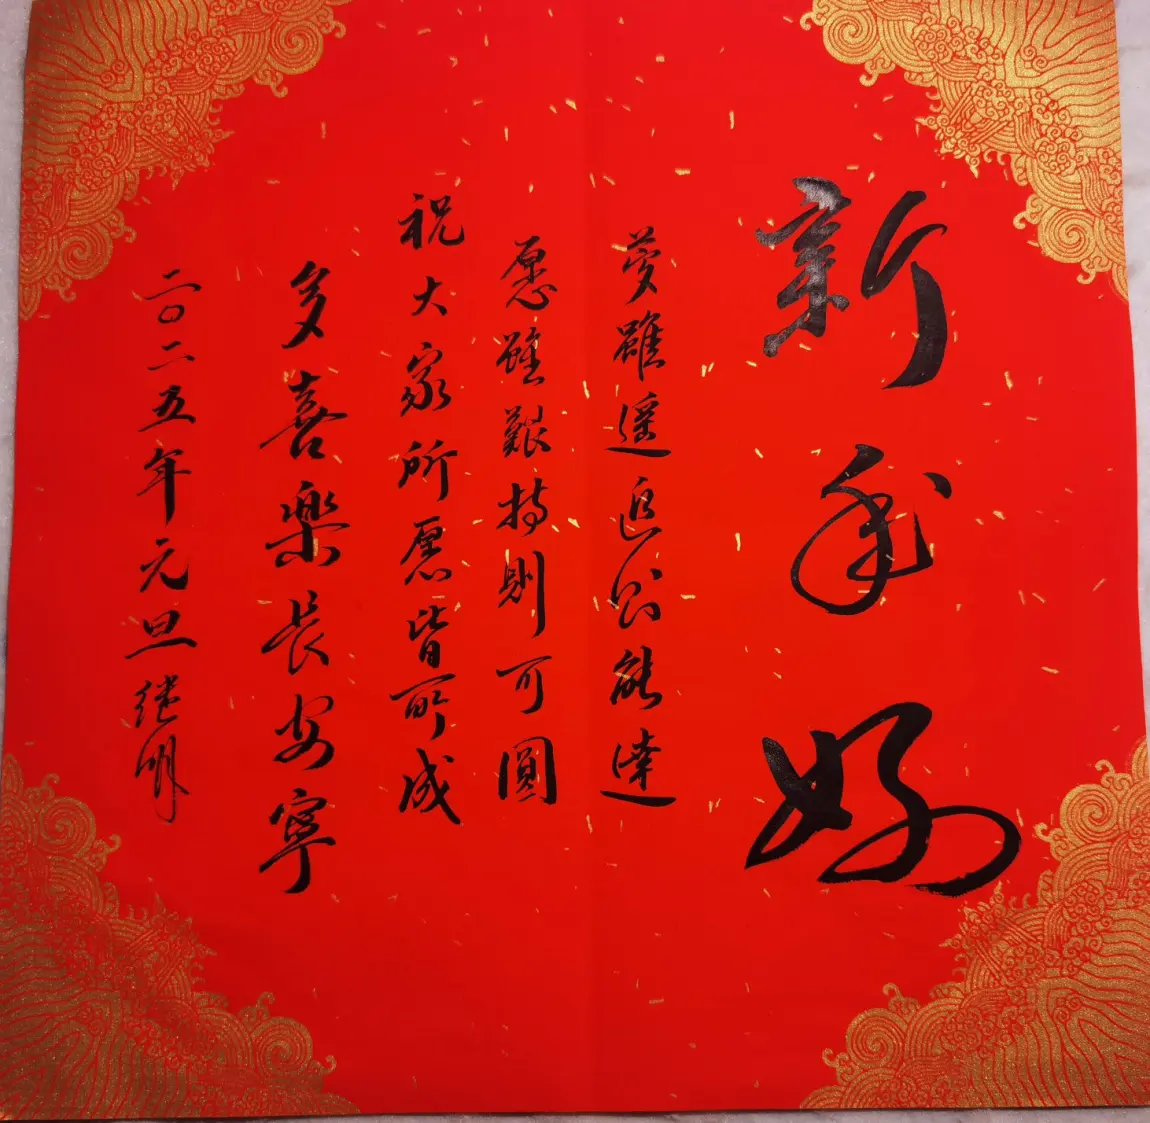 新年好
夢雖遥追則能達
愿雖艱持則可圓
祝大家所愿皆所成
多喜樂长安寧
二〇二五年元旦继明